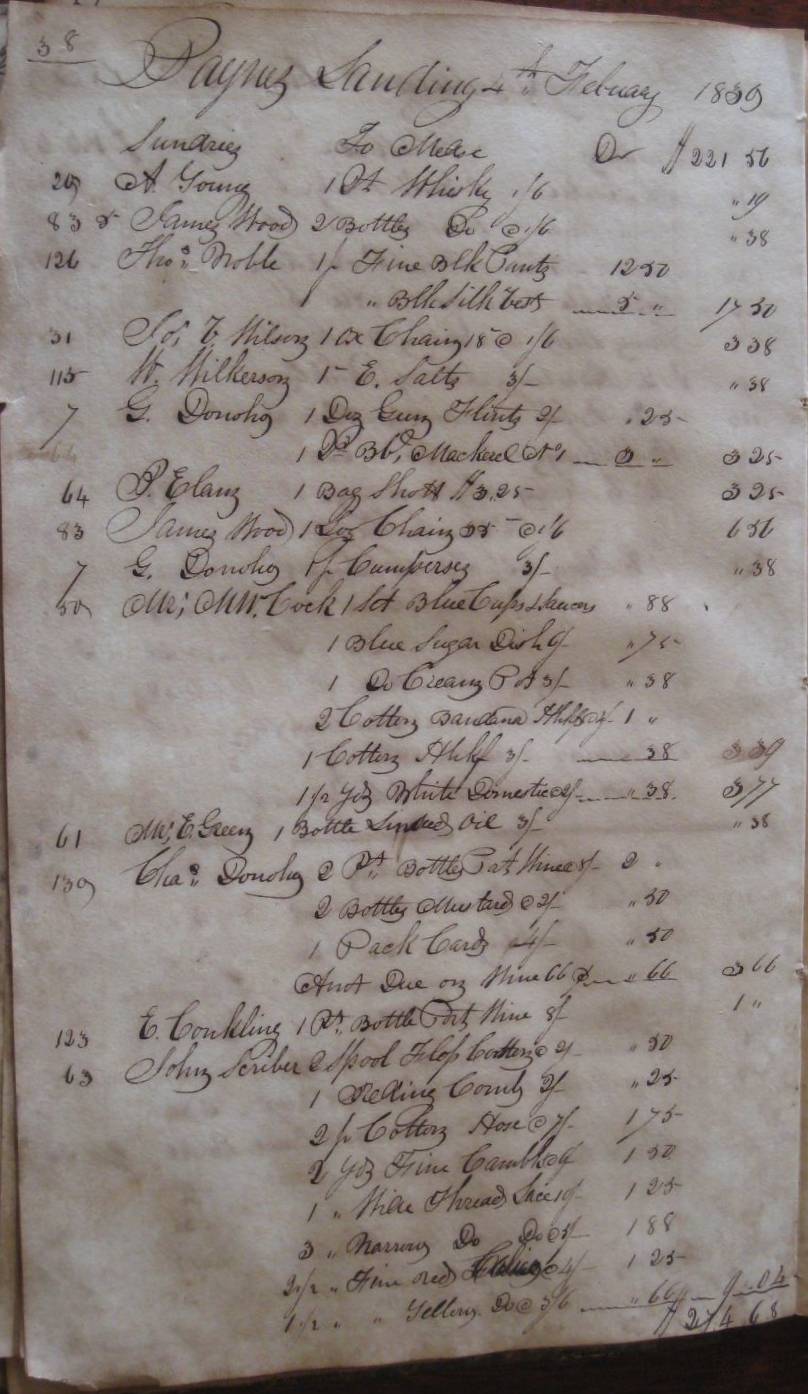 38
Paynes Landing 4th Febuary 1839
Sundries To Mdse Dr $221 56
209 A. Young 1 Pt Whisky 1/6 " 19
83 James Wood 2 Bottles Do @ 1/6 " 38
126 Thos Noble 1 p Fine Blk Pants 12 50
" Blk Silk Vest 5 " 17 50
31 Wilson 1 Ox Chain 18 @ 1/6 3 38
115 W. Wilkerson 1 E. Salts 3/- " 38
7 G. Donoho 1 Doz Gun Flints 2/- " 25
1 Bbl Mackerel No 1 3 " 3 25
64 P. Elam 1 Bag Shott $3,25 3 25
83 James Wood 1 Log Chain 35 @ 1/6 6 56
7 G. Donoho 1 p 3/- " 38
50 Mrs M.W. Cock 1 Set Blue Cups & Saucers " 88
1 Blue Sugar Dish 6/- " 75
1 Do Cream Pot 3/- " 38
2 Cotton Bandana Hhkfs @ 4/- 1 "
1 Cotton Hhkf 3/- 38 3 39
1 1/2 Yds White Domestic @ 2/- " 38 3 77
61 E. Green 1 Bottle Linseed Oil 3/- " 38
139 Chas Donoho 2 Pt Bottles Port Wine 8/- 2 "
2 Bottles Mustard @ 2/- " 50
1 Pack Cards 4/- " 50
Amt Due on Wine 66 " 66 3 66
123 E. Conkling 1 Pt Bottle Port Wine 8/- 1 "
63 John Scriber 2 Spool Flop Cotton @ 2/- " 50
1 Redding Comb 2/- " 25
2 p Cotton Hose @ 7/- 1 75
2 Yds Fine 6/- 1 50
1 " Wide Thread Lace 10/- 1 25
3 " Narrow Do Do @ 5/- 1 88
2 1/2 " Fine red Calico @ 4/- 1 25
1 1/2 " " Yellow Do @ 3/6 " 66 9 04
$274 68